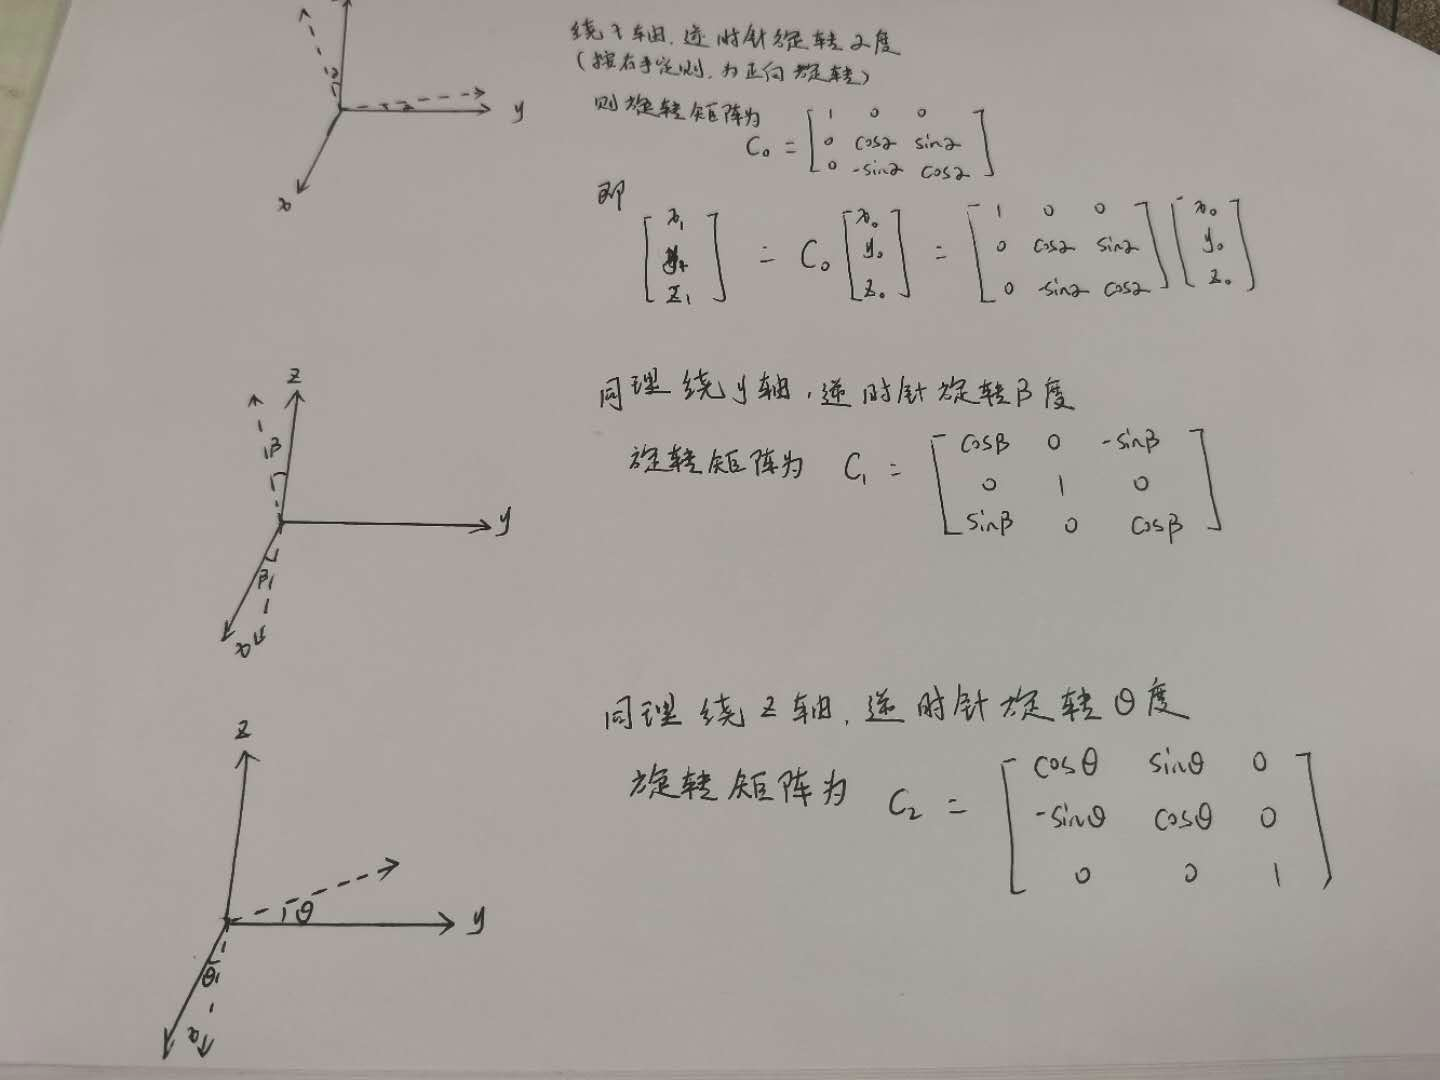 绕x轴,逆时针旋转α度
(按右手定则,为正向旋转)
y
则旋转矩阵为
C₀ = [1 0 0; 0 cosα sinα; 0 -sinα cosα]
x
即
[x₁; y₁; z₁] = C₀ [x₀; y₀; z₀] = [1 0 0; 0 cosα sinα; 0 -sinα cosα] [x₀; y₀; z₀]
z
同理绕y轴,逆时针旋转β度
β
旋转矩阵为 C₁ = [cosβ 0 -sinβ; 0 1 0; sinβ 0 cosβ]
y
β
x
同理绕z轴,逆时针旋转θ度
z
旋转矩阵为 C₂ = [cosθ sinθ 0; -sinθ cosθ 0; 0 0 1]
θ
y
θ
x